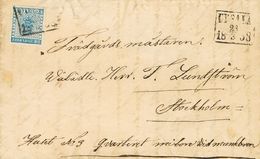 UPSALA
23
1858
Trädgårdsmästaren
Wälädle Herr T. Lundström
Stockholm
Huset N:3 qvarteret vid